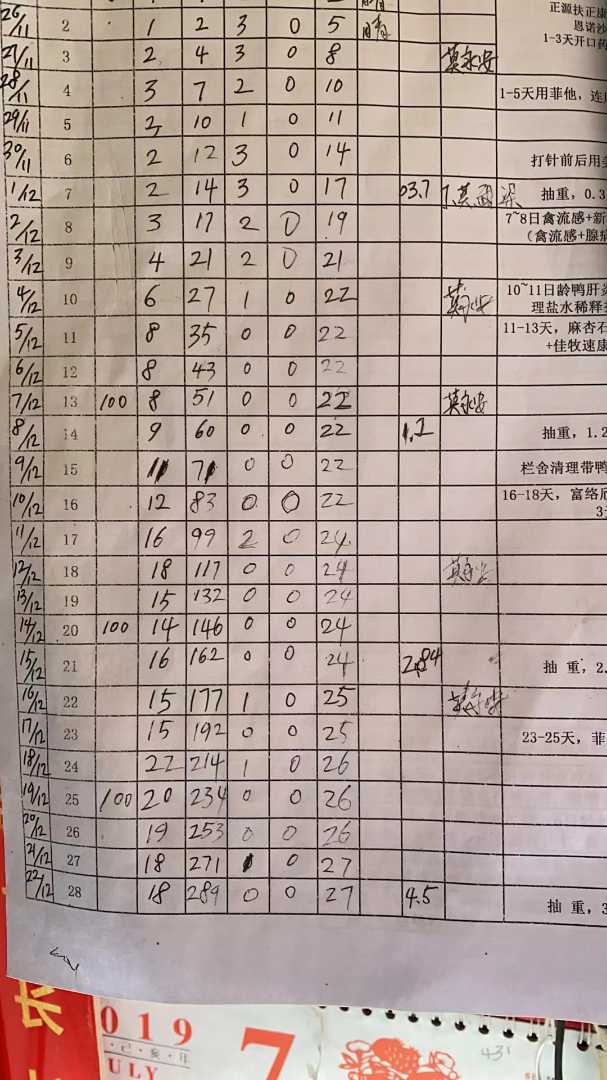 正源扶正康
26/11 2 1 2 3 0 5 恩诺沙
1-3天开口药
27/11 3 2 4 3 0 8 莫永安
28/11 4 3 7 2 0 10 1-5天用菲他，连
29/11 5 2 10 1 0 11
30/11 6 2 12 3 0 14 打针前后用
1/12 7 2 14 3 0 17 03.7 抽重，0.3
2/12 8 3 17 2 0 19 7~8日禽流感+新
（禽流感+腺病
3/12 9 4 21 2 0 21
4/12 10 6 27 1 0 22 莫永安 10~11日龄鸭肝
理盐水稀释
5/12 11 8 35 0 0 22 11-13天，麻杏石
+佳牧速康
6/12 12 8 43 0 0 22
7/12 13 100 8 51 0 0 22 莫永安
8/12 14 9 60 0 0 22 1.2 抽重，1.2
9/12 15 11 71 0 0 22 栏舍清理带鸭
10/12 16 12 83 0 0 22 16-18天，富络欣
3
11/12 17 16 99 2 0 24
12/12 18 18 117 0 0 24 莫永安
13/12 19 15 132 0 0 24
14/12 20 100 14 146 0 0 24
15/12 21 16 162 0 0 24 2.84 抽 重，2.
16/12 22 15 177 1 0 25 莫永安
17/12 23 15 192 0 0 25 23-25天，菲
18/12 24 22 214 1 0 26
19/12 25 100 20 234 0 0 26
20/12 26 19 253 0 0 26
21/12 27 18 271 1 0 27
22/12 28 18 289 0 0 27 4.5 抽 重，3
长
019
己·亥·年
ULY
7
431